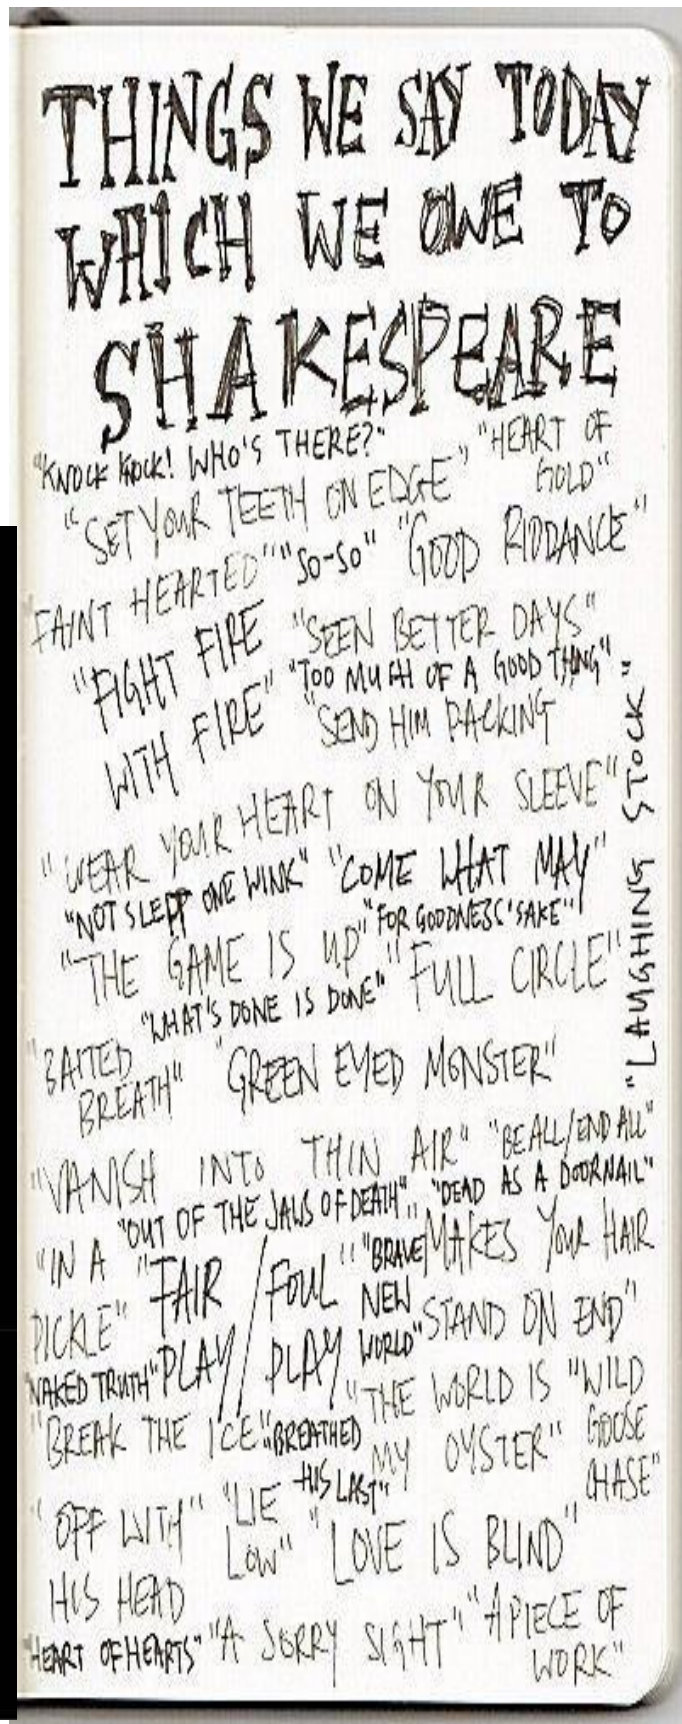 THINGS WE SAY TODAY
WHICH WE OWE TO
SHAKESPEARE
"KNOCK KNOCK! WHO'S THERE?" "HEART OF
GOLD"
"SET YOUR TEETH ON EDGE"
"FAINT HEARTED" "SO-SO" "GOOD RIDDANCE"
"FIGHT FIRE
WITH FIRE"
"SEEN BETTER DAYS"
"TOO MUCH OF A GOOD THING"
"SEND HIM PACKING
"LAUGHING STOCK"
"WEAR YOUR HEART ON YOUR SLEEVE"
"NOT SLEPT ONE WINK" "COME WHAT MAY"
"FOR GOODNESS' SAKE"
"THE GAME IS UP" "FULL CIRCLE"
"WHAT'S DONE IS DONE"
"BAITED
BREATH"
"GREEN EYED MONSTER"
"VANISH INTO THIN AIR" "BE ALL/END ALL"
"OUT OF THE JAWS OF DEATH" "DEAD AS A DOORNAIL"
"IN A
PICKLE"
"FAIR PLAY/
FOUL PLAY"
"BRAVE
NEW
WORLD"
MAKES YOUR HAIR
STAND ON END"
NAKED TRUTH"
"BREAK THE ICE"
"BREATHED
HIS LAST"
"THE WORLD IS
MY OYSTER"
"WILD
GOOSE
CHASE"
"OFF WITH"
HIS HEAD
"LIE
LOW"
"LOVE IS BLIND"
"HEART OF HEARTS" "A SORRY SIGHT" "A PIECE OF
WORK"